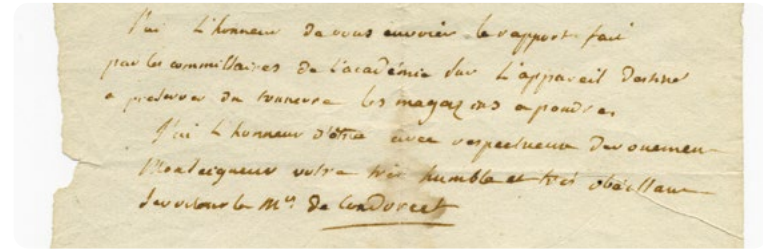 J'ai L'honneur de vous envoier le rapport fait
par les commissaires de L'académie sur L'appareil destiné
a preserver du tonnerre les magazins a poudre.
J'ai L'honneur d'être avec respectueux devouement
Monseigneur votre très humble et très obeissant
serviteur le Mis de Condorcet